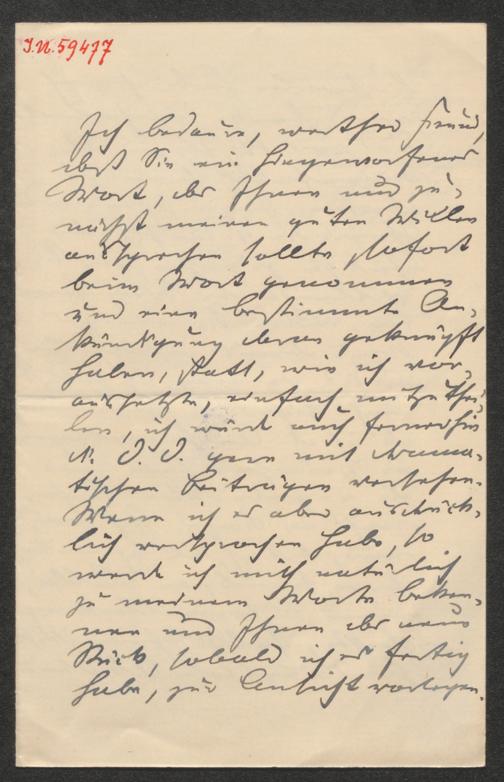 J.N. 59477
Ich bedaure, werther Freund,
daß Sie ein hingeworfenes
Wort, das Ihnen nur zu-
nächst meinen guten Willen
aussprechen sollte sofort
beim Wort genommen
und eine bestimmte An-
kündigung daran geknüpft
haben, statt, wie ich vor-
aussetzte, einfach mitzuthei-
len, ich würde auch fernerhin
gern mit drama-
tischen Beiträgen versehen.
Wenn ich es aber ausdrück-
lich versprochen habe, so
werde ich mich natürlich
zu meinem Worte beken-
nen und Ihnen das neue
Stück, sobald ich es fertig
habe, zur Ansicht vorlegen.